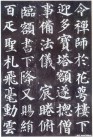 令禪師於花萼樓下
迎多寶塔額遂揔僧
事備法儀宸睠俯
臨額書下降又賜絹
百疋聖札飛毫動雲